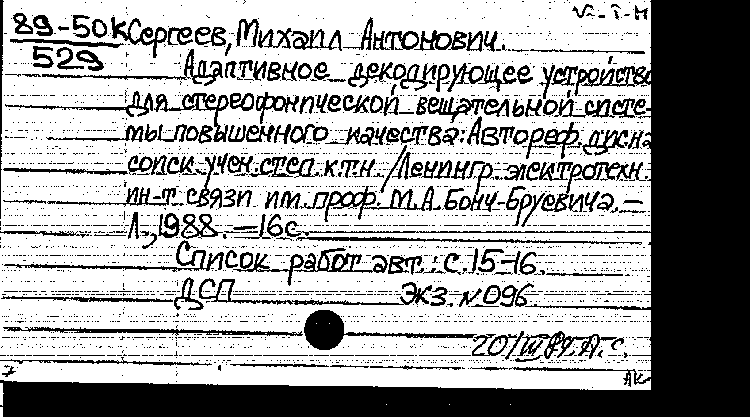 89-50к Сергеев, Михаил Антонович.
529
Адаптивное декодирующее устройство
для стереофонической вещательной систе-
мы повышенного качества: Автореф. дис на
соиск. учен. степ. к.т.н. /Ленингр. электротехн.
ин-т связи им. проф. М.А. Бонч-Бруевича. —
Л., 1988. — 16 с.
Список работ авт.: с. 15-16.
ДСП Экз. N 096